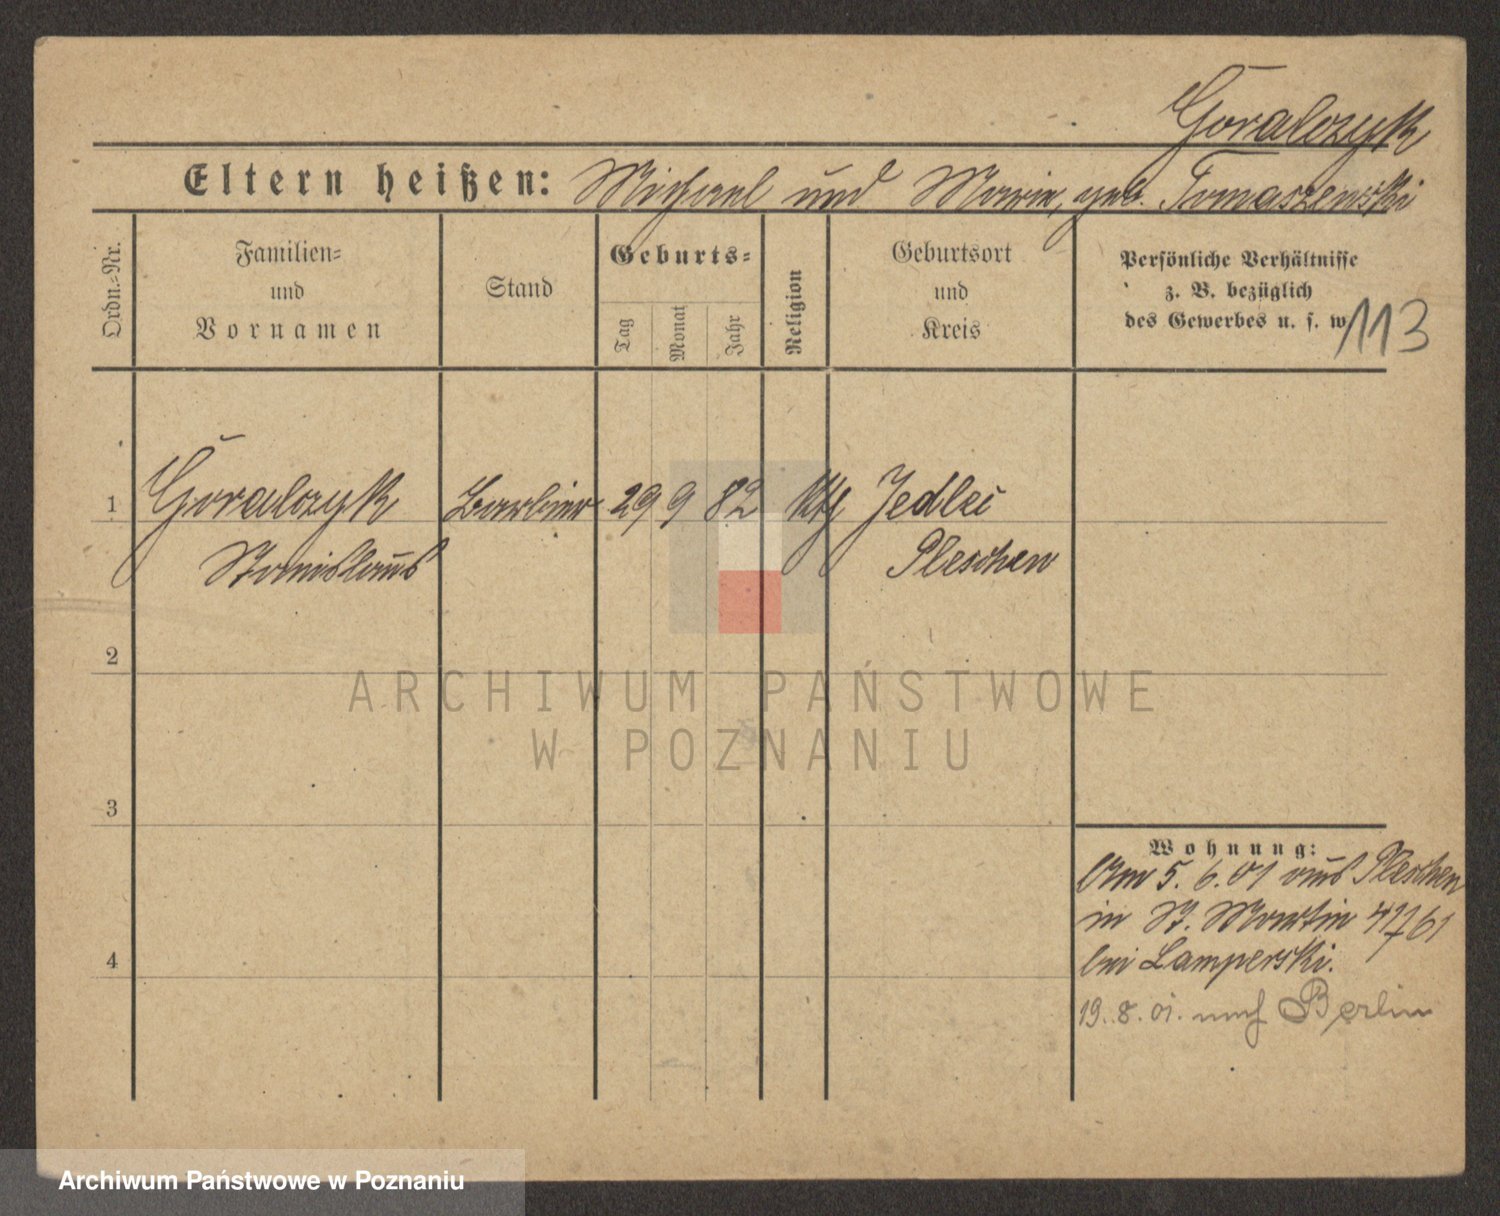 Goralczyk
Eltern heißen: Michael und Marie, geb. Tomaszewski
Ordn.-Nr.
Familien=
und
Vornamen
Stand
Geburts=
Tag
Monat
Jahr
Religion
Geburtsort
und
Kreis
Persönliche Verhältnisse
z. B. bezüglich
des Gewerbes u. s. w.
113
1 Goralczyk Barbier 29 9 82 kth Jedlec
Stanislaus Pleschen
2
ARCHIWUM PAŃSTWOWE
W POZNANIU
3
Wohnung:
Am 5. 6. 01 aus Pleschen
in St. Martin
bei Lamperski.
4
19. 8. 01. nach Berlin
Archiwum Państwowe w Poznaniu